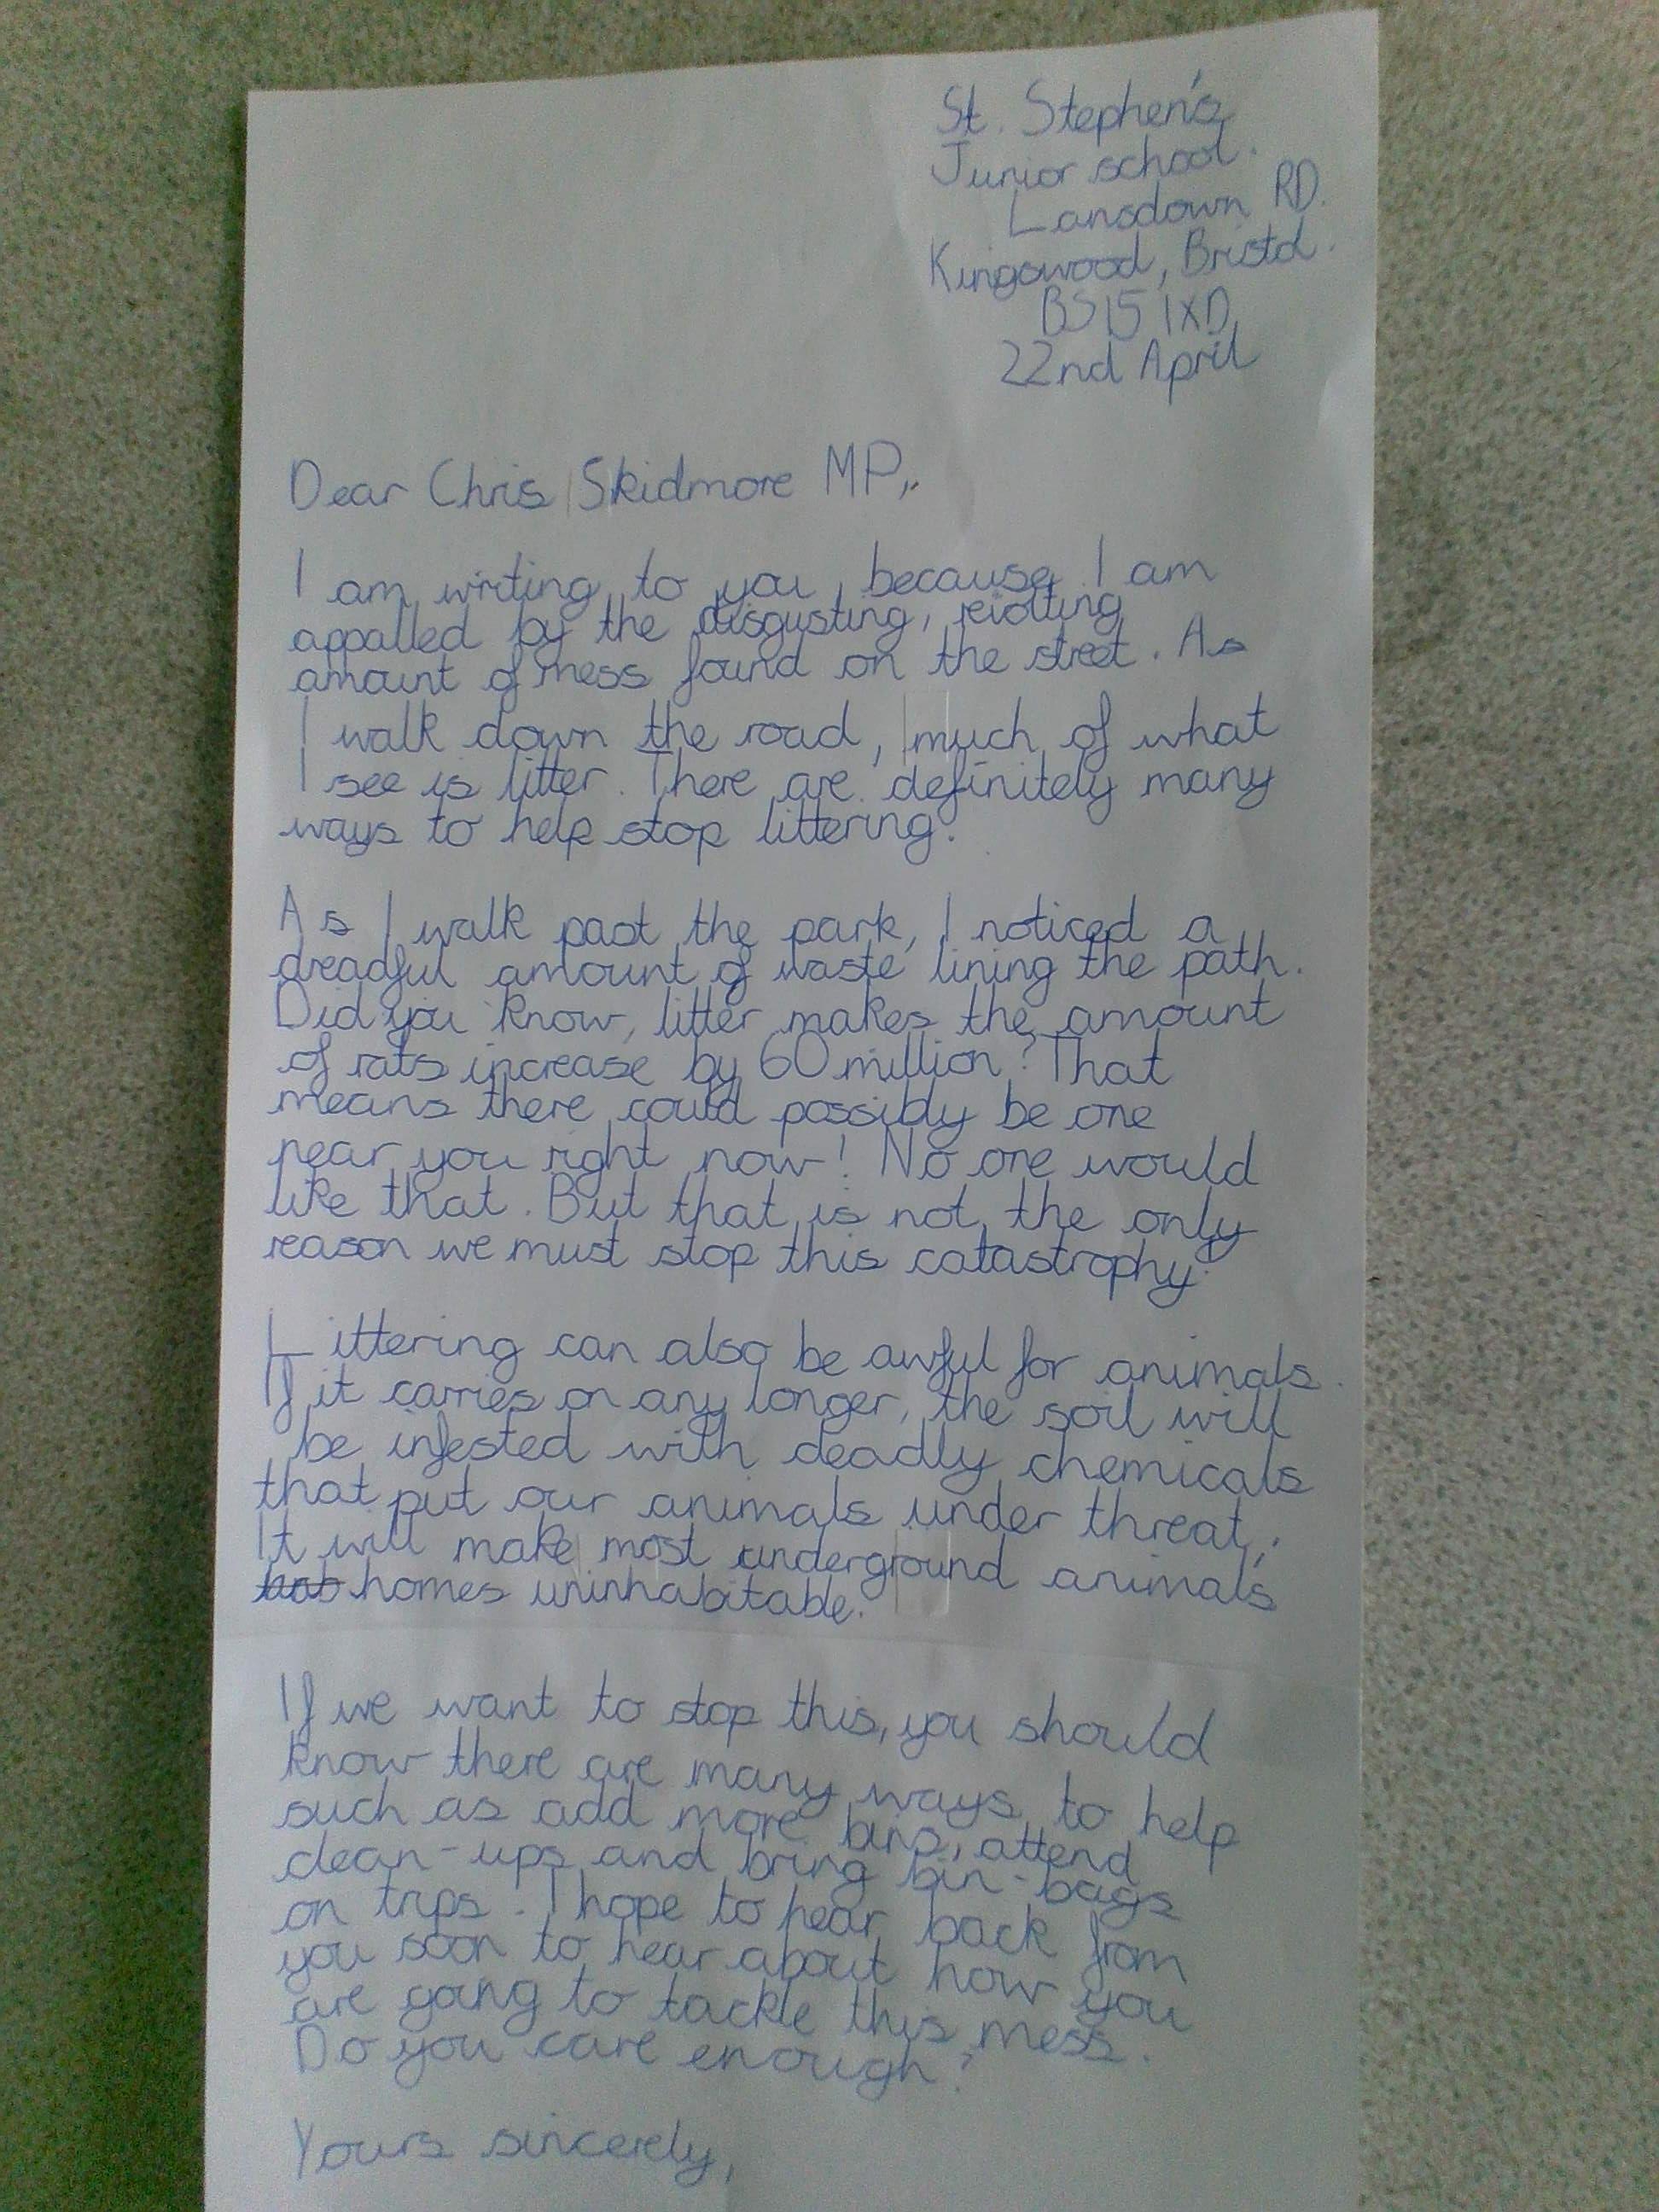 St. Stephen's
Junior school.
Lansdown RD.
Kingswood, Bristol.
BS15 1XD
22nd April
Dear Chris Skidmore MP,
I am writing to you because I am
appalled by the disgusting, riolting
amount of mess found on the street. As
I walk down the road, much of what
I see is litter. There are definitely many
ways to help stop littering.
As I walk past the park, I noticed a
dreadful amount of waste lining the path.
Did you know, litter makes the amount
of rats increase by 60 million? That
means there could possibly be one
near you right now! No one would
like that. But that is not the only
reason we must stop this catastrophy.
Littering can also be awful for animals.
If it carries on any longer, the soil will
be infested with deadly chemicals
that put our animals under threat;
It will make most underground animals
homes uninhabitable.
If we want to stop this, you should
know there are many ways to help
such as add more bins, attend
clean-ups and bring bin-bags
on trips. I hope to hear back from
you soon to hear about how you
are going to tackle this mess.
Do you care enough?
Yours sincerely,